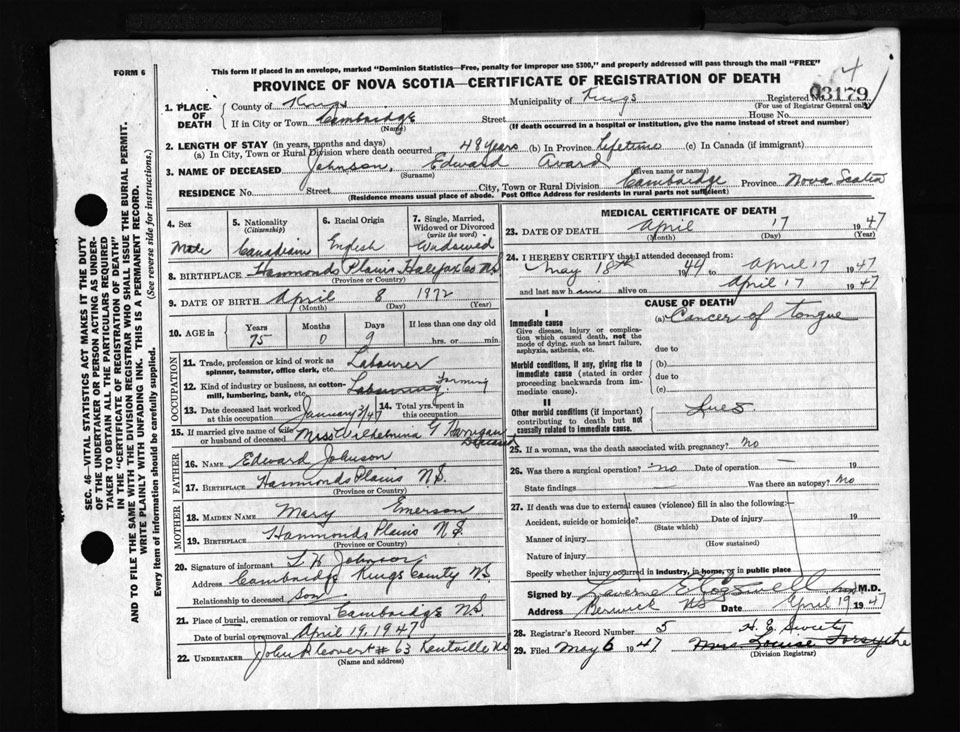 FORM 6
This form if placed in an envelope, marked "Dominion Statistics—Free, penalty for improper use $300," and properly addressed will pass through the mail "FREE"
PROVINCE OF NOVA SCOTIA—CERTIFICATE OF REGISTRATION OF DEATH
4
1. PLACE OF DEATH
County of Kings Municipality of Kings Registered No. 03179
(For use of Registrar General only)
If in City or Town Cambridge Street House No.
(Name) (If death occurred in a hospital or institution, give the name instead of street and number)
2. LENGTH OF STAY (in years, months and days)
(a) In City, Town or Rural Division where death occurred 49 years (b) In Province Lifetime (c) In Canada (if immigrant)
3. NAME OF DECEASED Johnson, Edward Avard
(Surname) (Given name or names)
RESIDENCE No. Street City, Town or Rural Division Cambridge Province Nova Scotia
(Residence means usual place of abode. Post Office Address for residents in rural parts not sufficient)
4. Sex Male
5. Nationality (Citizenship) Canadian
6. Racial Origin English
7. Single, Married, Widowed or Divorced (write the word) Widowed
8. BIRTHPLACE Hammonds Plains Halifax Co N.S.
(Province or Country)
9. DATE OF BIRTH April 8 1972
(Month) (Day) (Year)
10. AGE in Years Months Days If less than one day old
75 0 9 hrs. or min.
OCCUPATION
11. Trade, profession or kind of work as spinner, teamster, office clerk, etc. Labourer
12. Kind of industry or business, as cotton-mill, lumbering, bank, etc. Labouring Farming
13. Date deceased last worked at this occupation January 3/47
14. Total yrs. spent in this occupation
15. If married give name of wife or husband of deceased Miss Wilhelmina G
FATHER
16. NAME Edward Johnson
17. BIRTHPLACE Hammonds Plains N.S.
(Province or Country)
MOTHER
18. MAIDEN NAME Mary Emerson
19. BIRTHPLACE Hammonds Plains N.S.
(Province or Country)
20. Signature of informant L. H. Johnson
Address Cambridge Kings County N.S.
Relationship to deceased Son
21. Place of burial, cremation or removal Cambridge N.S.
Date of burial or removal April 19, 1947
22. UNDERTAKER John R Covert # 63 Kentville NS
(Name and address)
MEDICAL CERTIFICATE OF DEATH
23. DATE OF DEATH April 17 1947
(Month) (Day) (Year)
24. I HEREBY CERTIFY that I attended deceased from:
May 18th 1944 to April 17 1947
and last saw him alive on April 17 1947
CAUSE OF DEATH
I
Immediate cause
Give disease, injury or complication which caused death, not the mode of dying, such as heart failure, asphyxia, asthenia, etc.
(a) Cancer of tongue
due to
Morbid conditions, if any, giving rise to immediate cause (stated in order proceeding backwards from immediate cause).
(b)
due to
(c)
II
Other morbid conditions (if important) contributing to death but not causally related to immediate cause.
Lues.
25. If a woman, was the death associated with pregnancy? No
26. Was there a surgical operation? — no Date of operation — 19
State findings Was there an autopsy? No
27. If death was due to external causes (violence) fill in also the following:
Accident, suicide or homicide? Date of injury 19
(State which)
Manner of injury
(How sustained)
Nature of injury
Specify whether injury occurred in industry, in home, or in public place
Signed by Laverne E Cogswell M.D.
Address Berwick NS Date April 19 1947
28. Registrar's Record Number 5 H. E. Sweety
29. Filed May 6 1947 Mrs. Louise Forsythe
(Division Registrar)
SEC. 46—VITAL STATISTICS ACT MAKES IT THE DUTY
OF THE UNDERTAKER OR PERSON ACTING AS UNDER-
TAKER TO OBTAIN ALL THE PARTICULARS REQUIRED
IN THE "CERTIFICATE OF REGISTRATION OF DEATH"
AND TO FILE THE SAME WITH THE DIVISION REGISTRAR WHO SHALL ISSUE THE BURIAL PERMIT.
WRITE PLAINLY WITH UNFADING INK. THIS IS A PERMANENT RECORD.
Every item of information should be carefully supplied. (See reverse side for instructions.)